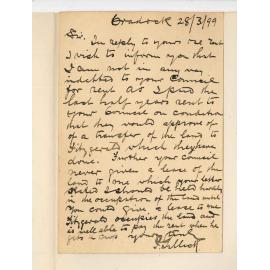 Cradock 28/3/99
Sir. In reply to yours re rent
I wish to inform you that
I am not in any way
indebted to your Council
for rent as I paid the
last half years rent to
your Council on condition
that they would approve of
of a transfer of the land to
Fitzgerald which they have
done. Further your Council
never given a lease of the
land to me which your lessee
I should be held
in the occupation of the land until
you could give a lease to
Fitzgerald occupies the land and
is well able to pay the rent when he
gets a yours truly